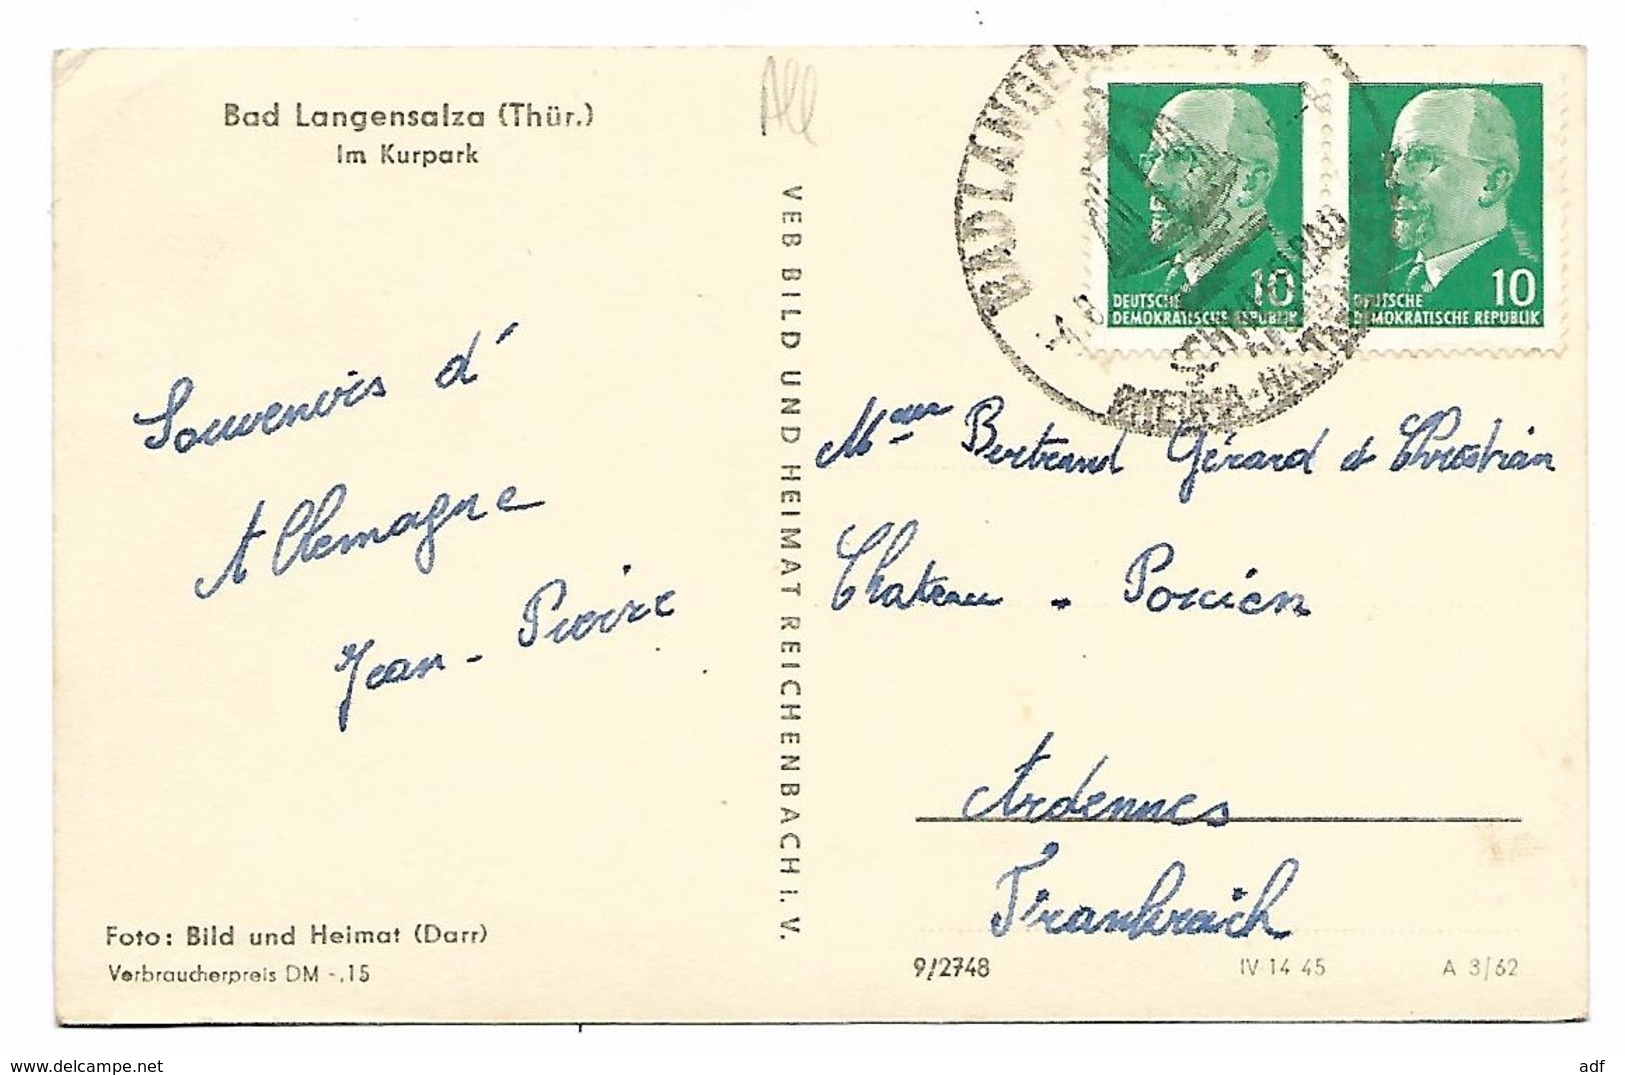 Bad Langensalza (Thür.)
Im Kurpark
All
Souvenirs d'
Allemagne
Jean-Pierre
Foto: Bild und Heimat (Darr)
Verbraucherpreis DM -,15
VEB BILD UND HEIMAT REICHENBACH I. V.
BAD LANGEN
DEUTSCHE
DEMOKRATISCHE REPUBLIK
10
DEUTSCHE
DEMOKRATISCHE REPUBLIK
10
SCHWEFELBAD
RHEUMA-
Bertrand Gérard et Christian
Chateau - Porcien
Ardennes
Frankreich
9/2748 IV 14 45 A 3/62
adf